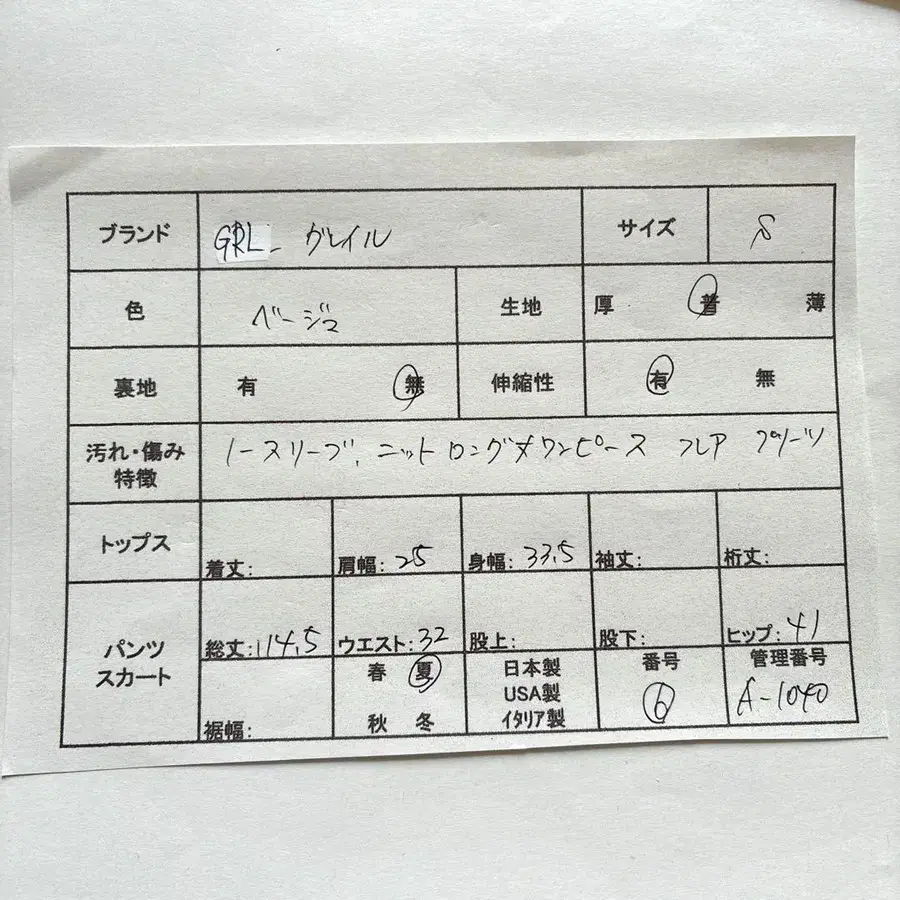 ブランド GRL グレイル サイズ S
色 ベージュ 生地 厚 普 薄
裏地 有 無 伸縮性 有 無
汚れ・傷み
特徴
ノースリーブ、ニットロング丈ワンピース フレア プリーツ
トップス 着丈: 肩幅: 25 身幅: 33.5 袖丈: 裄丈:
パンツ
スカート
総丈: 114.5 ウエスト: 32 股上: 股下: ヒップ: 41
裾幅:
春 夏
秋 冬
日本製
USA製
イタリア製
番号
6
管理番号
A-1040